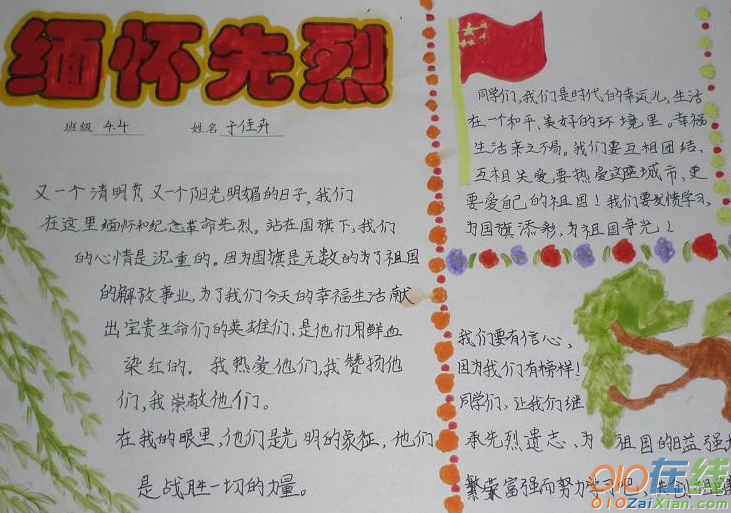 缅怀先烈
班级 4.4 姓名 于佳卉
又一个清明节又一个阳光明媚的日子。我们
在这里缅怀和纪念革命先烈。站在国旗下,我们
的心情是沉重的。因为国旗是无数的为了祖国
的解放事业,为了我们今天的幸福生活献
出宝贵生命们的英雄们,是他们用鲜血
染红的。我热爱他们,我赞扬他
们,我崇敬他们。
在我的眼里,他们是光明的象征,他们
是战胜一切的力量。
同学们,我们是时代的幸运儿,生活
在一个和平、美好的环境里。幸福
生活来之不易。我们要互相团结、
互相关爱,要热爱这座城市,更
要爱自己的祖国!我们要发愤学习,
为国旗添彩,为祖国争光!
我们要有信心,
因为我们有榜样!
同学们,让我们继
承先烈遗志,为祖国的日益强大
繁荣富强而努力学习吧,共创祖国
010在线
010ZaiXian.com